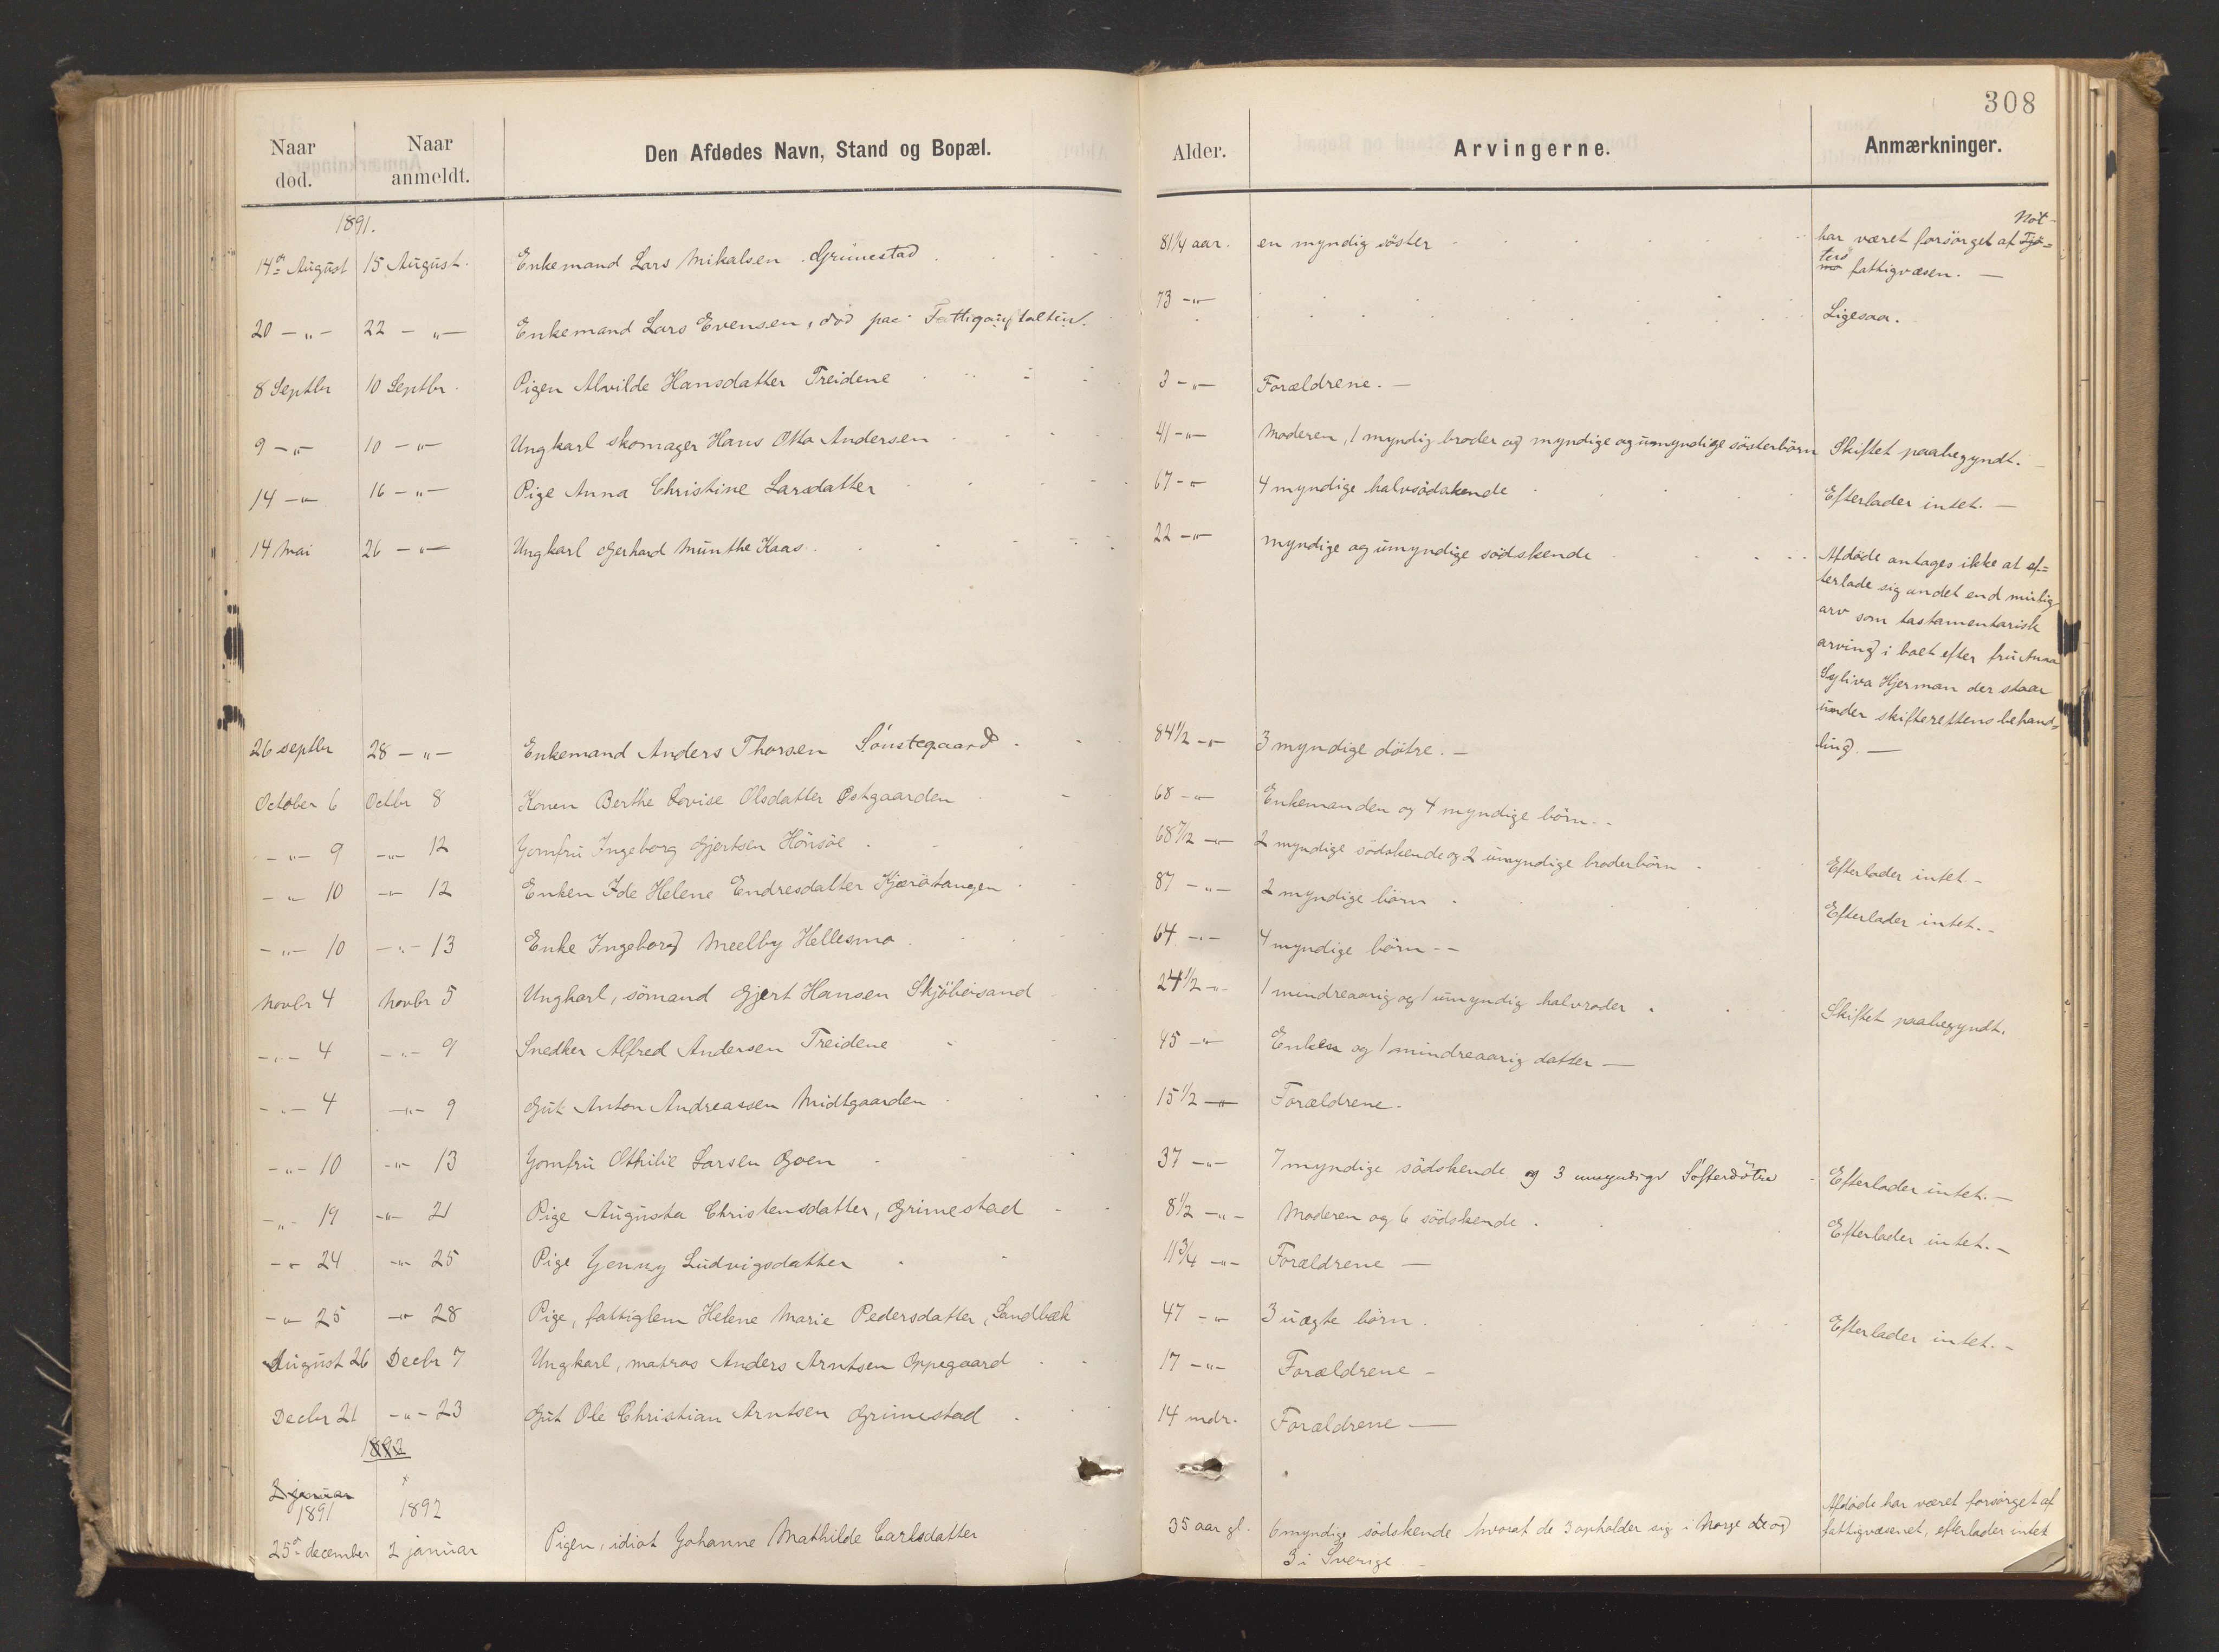 308
Naar død. Naar anmeldt. Den Afdødes Navn, Stand og Bopæl. Alder. Arvingerne. Anmærkninger.
1891.
14de August 15 August. Enkemand Lars Mikalsen Grimestad 81 1/4 aar. en myndig søster har været forsørget af Tjø= Nøt-
mø terø fattigvæsen. —
20 —„— 22 —„— Enkemand Lars Evensen, død paa Fattiganstalten. 73 —„— Ligesaa.
8 Septbr 10 Septbr. Pigen Alvilde Hansdatter Treidene 3 —„— Forældrene. —
9 —„— 10 —„— Ungkarl skomager Hans Otto Andersen 41 —„— Moderen, 1 myndig broder og myndige og umyndige søsterbørn Skiftet paabegyndt. —
14 —„— 16 —„— Pige Anna Christine Larsdatter 67 —„— 4 myndige halvsødskende Efterlader intet. —
14 Mai 26 —„— Ungkarl Gerhard Munthe Kaas. 22 —„— myndige og umyndige sødskende Afdøde antages ikke at ef=
terlade sig andet end mulig
arv som tastamentarisk
arving i boet efter fru Anna
Syliva Hjerman der staar
under skifterettens behand=
ling. —
26 septbr 28 —„— Enkemand Anders Thorsen Sønstegaard 84 1/2 —„— 3 myndige døtre. —
October 6 Octbr 8 Konen Berthe Lovise Olsdatter Østgaarden 68 —„— Enkemanden og 4 myndige børn. -
—„— 9 —„— 12 Jomfru Ingeborg Gjertsen Hønsøe 68 1/2 —„— 2 myndige sødskende og 2 umyndige broderbørn Efterlader intet. -
—„— 10 —„— 12 Enken Ide Helene Endresdatter Kjærøtangen 87 —„— 2 myndige børn Efterlader intet. -
—„— 10 —„— 13 Enke Ingeborg Meelby Hellesmo 64 —„— 4 myndige børn - -
Novbr 4 Novbr 5 Ungkarl, sømand Gjert Hansen Skjøbeisand 24 1/2 —„— 1 mindreaarig og 1 umyndig halvroder Skiftet paabegyndt.
—„— 4 —„— 9 Snedker Alfred Andersen Treidene 45 —„— Enken og 1 mindreaarig datter —
—„— 4 —„— 9 Gut Anton Andreassen Midtgaarden 15 1/2 —„— Forældrene -
—„— 10 —„— 13 Jomfru Othilie Larsen Goen 37 —„— 7 myndige sødskende og 3 umyndige Søsterdøtre Efterlader intet. —
—„— 19 —„— 21 Pige Augusta Christensdatter, Grimestad 8 1/2 —„— Moderen og 6 sødskende. Efterlader intet. —
—„— 24 —„— 25 Pige Jenny Ludvigsdatter 11 3/4 —„— Forældrene —
—„— 25 —„— 28 Pige, fattiglem Helene Marie Pedersdatter, Sandbæk 47 —„— 3 uægte børn. Efterlader intet. -
August 26 Decbr 7 Ungkarl, matros Anders Arntsen Oppegaard 17 —„— Forældrene —
Decbr 21 —„— 23 Gut Ole Christian Arntsen Grimestad 14 mdr. Forældrene —
1892
2 januar
1891 1892 Afdøde har været forsørget af
25de december 2 januar Pigen, idiot Johanne Mathilde Carlsdatter 35 aar gl. 6 myndige sødskende hvoraf de 3 opholder sig i Norge de og fattigvæsenet, efterlader intet
3 i Sverige